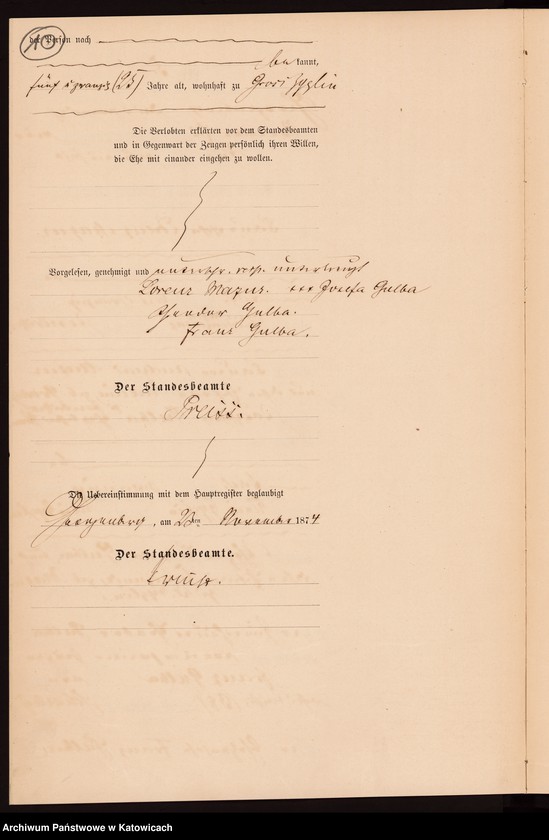 10
der Person nach
be kannt,
fünf u zwanzig (25) Jahre alt, wohnhaft zu Gross Zyglin
Die Verlobten erklärten vor dem Standesbeamten
und in Gegenwart der Zeugen persönlich ihren Willen,
die Ehe mit einander eingehen zu wollen.
Vorgelesen, genehmigt und unterschr. resp. unterkreuzt
Lorenz Mazur. +++ Josefa Gulba
Theodor Gulba.
Franz Gulba.
Der Standesbeamte
Preiss.
Die Uebereinstimmung mit dem Hauptregister beglaubigt
Georgenberg, am 23ten November 1874
Der Standesbeamte.
Archiwum Państwowe w Katowicach